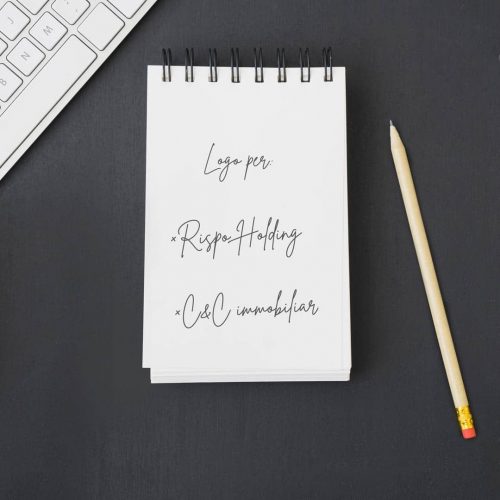 Logo per:
×RispoHolding
×C&C immobiliar